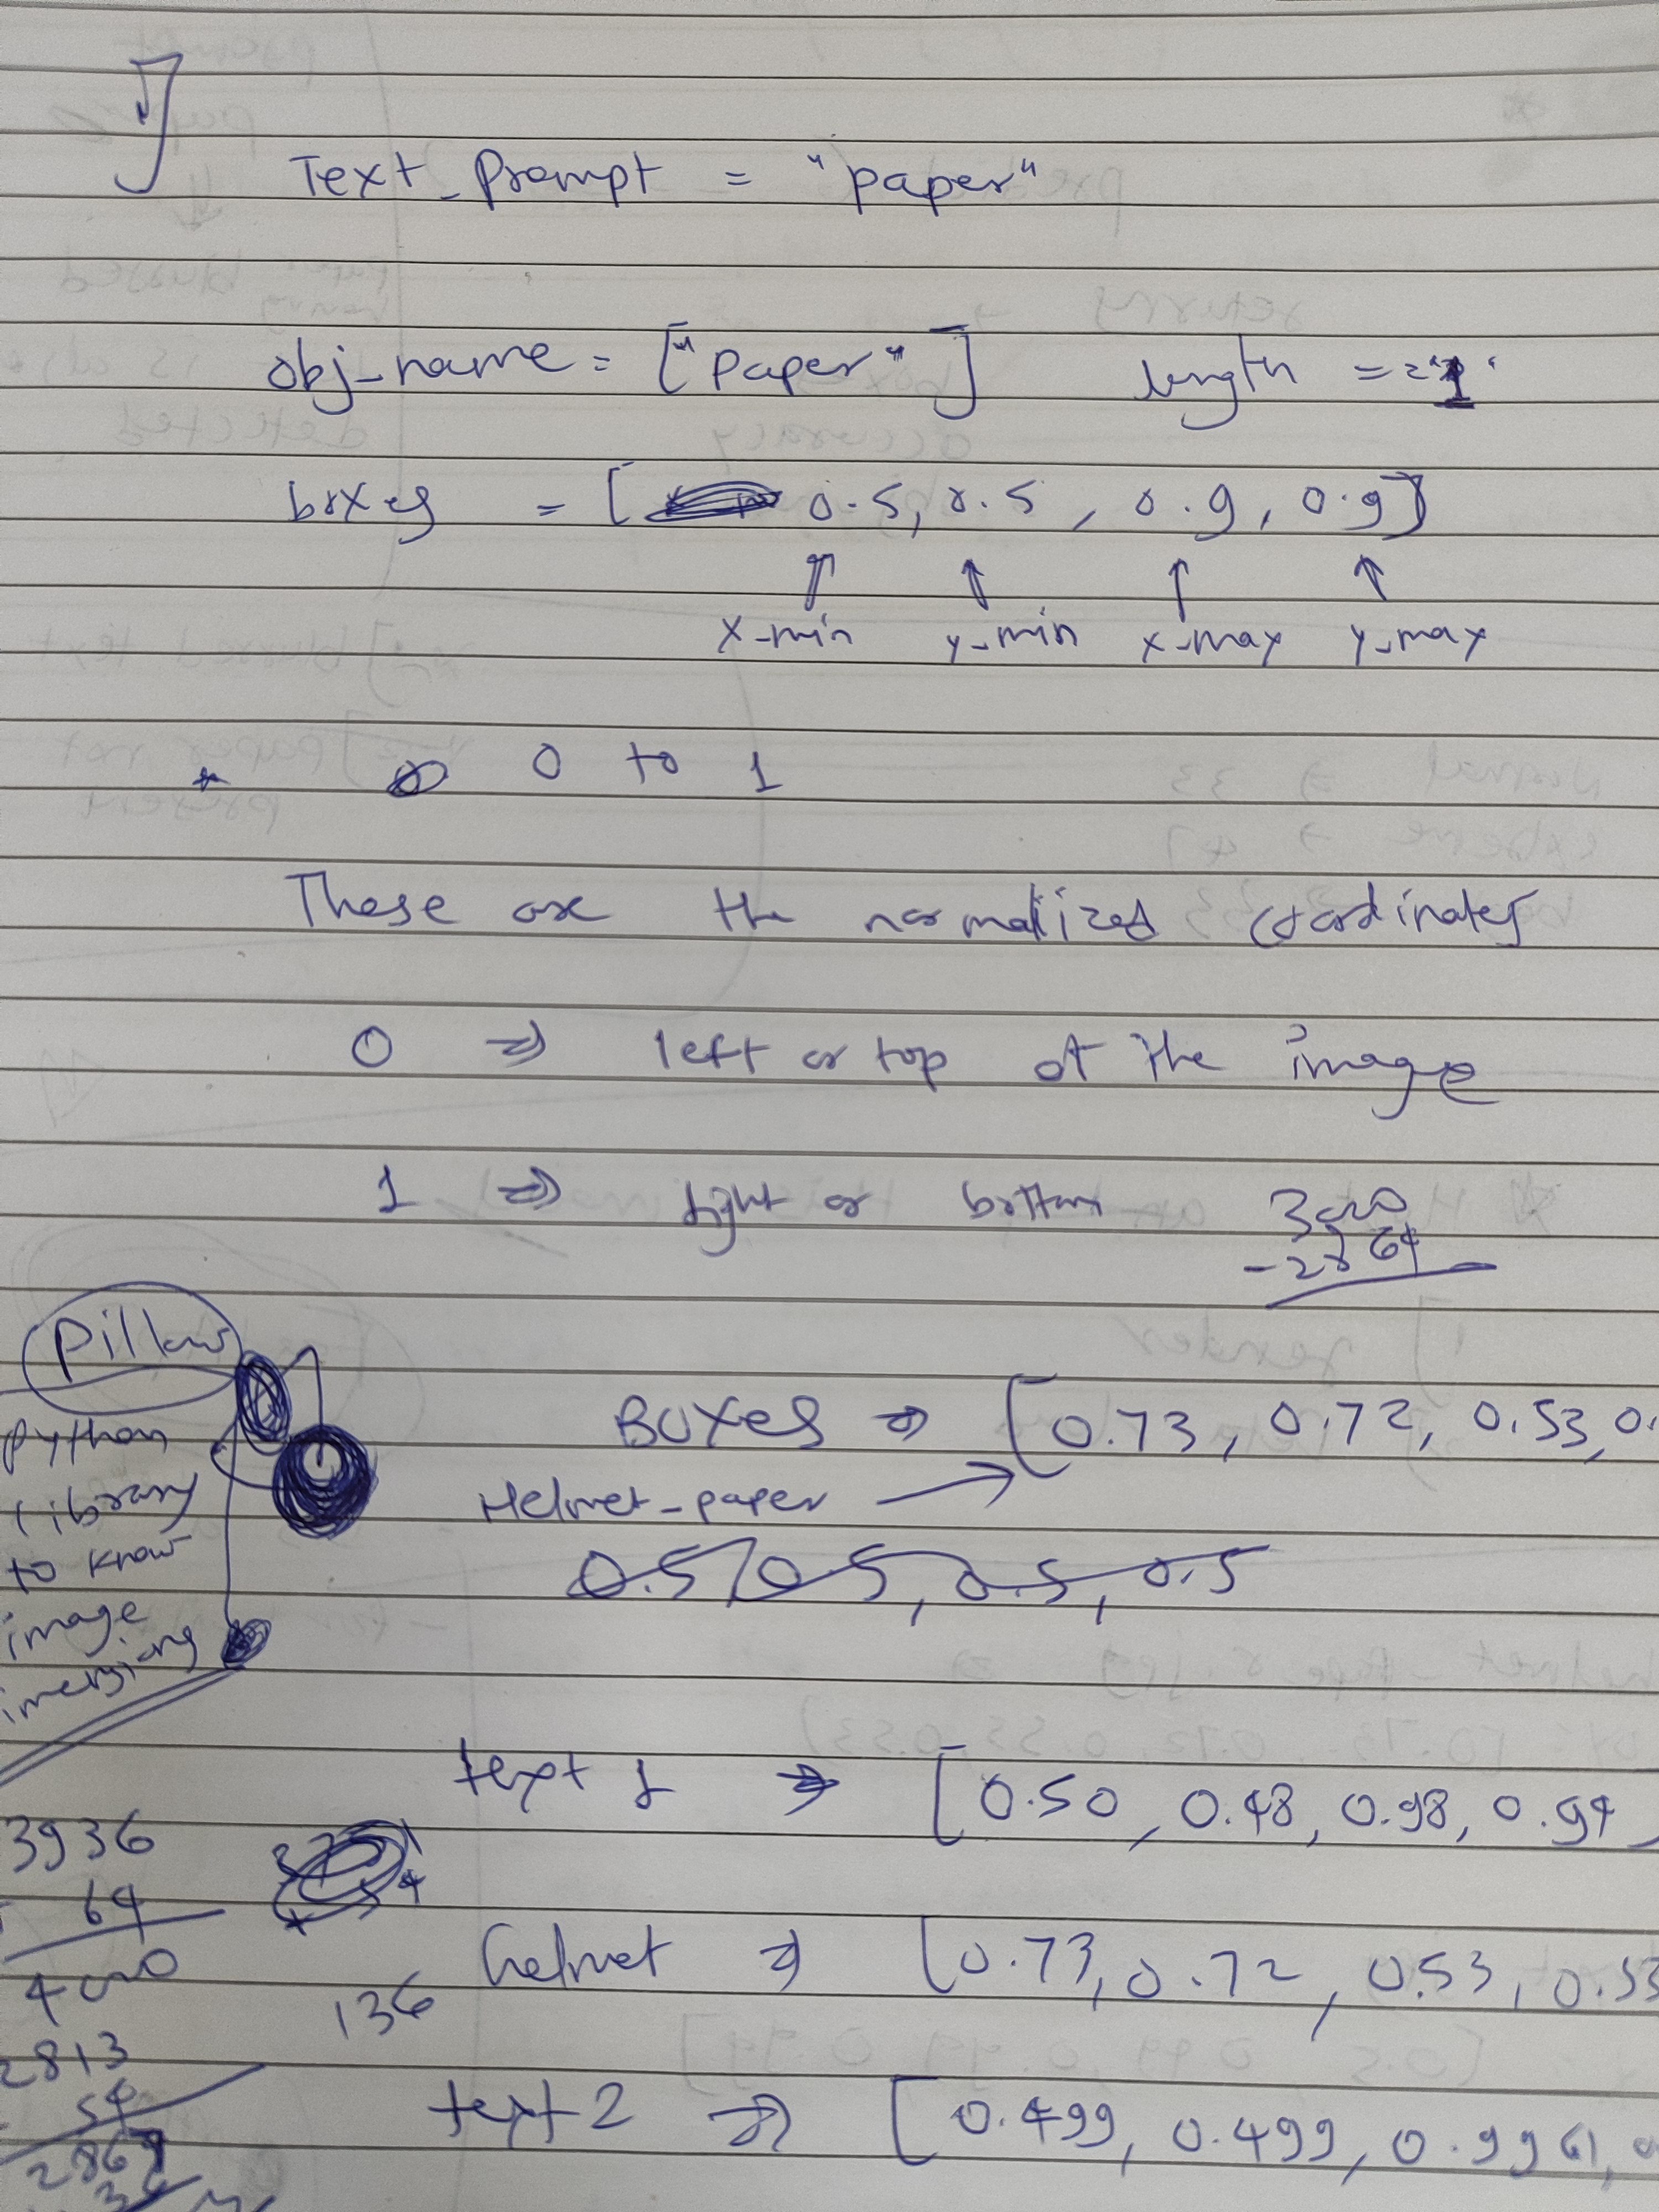 Text_Prompt = "paper"
obj_name = ["paper"] length == 1
boxes = [0.5, 0.5, 0.9, 0.9]
x-min y-min x-max y-max
* 0 to 1
These are the normalized coordinates
0 ⇒ left or top of the image
1 ⇒ right or bottom
3000
-2864
Pillow
python
library
to know
image
BOXes ⇒ [0.73, 0.72, 0.53, 0.
Helmet-paper →
0.5, 0.5, 0.5, 0.5
text 1 ⇒ [0.50, 0.48, 0.98, 0.94
3936
64
4000
helmet ⇒ [0.73, 0.72, 0.53, 0.53
136
2813
54
2867
text 2 ⇒ [0.499, 0.499, 0.9961,